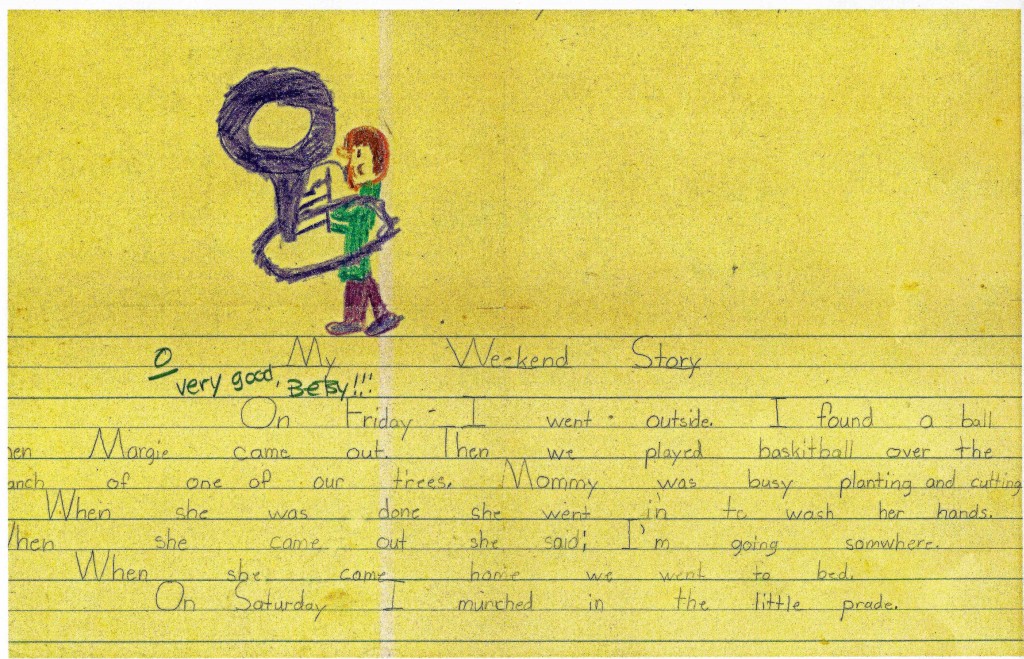 My Weekend Story
O
very good, Betsy!!!
On Friday I went outside. I found a ball
en Margie came out. Then we played baskitball over the
anch of one of our trees. Mommy was busy planting and cutting
When she was done she went in to wash her hands.
hen she came out she said; I'm going somwhere.
When she came home we went to bed.
On Saturday I munched in the little prade.